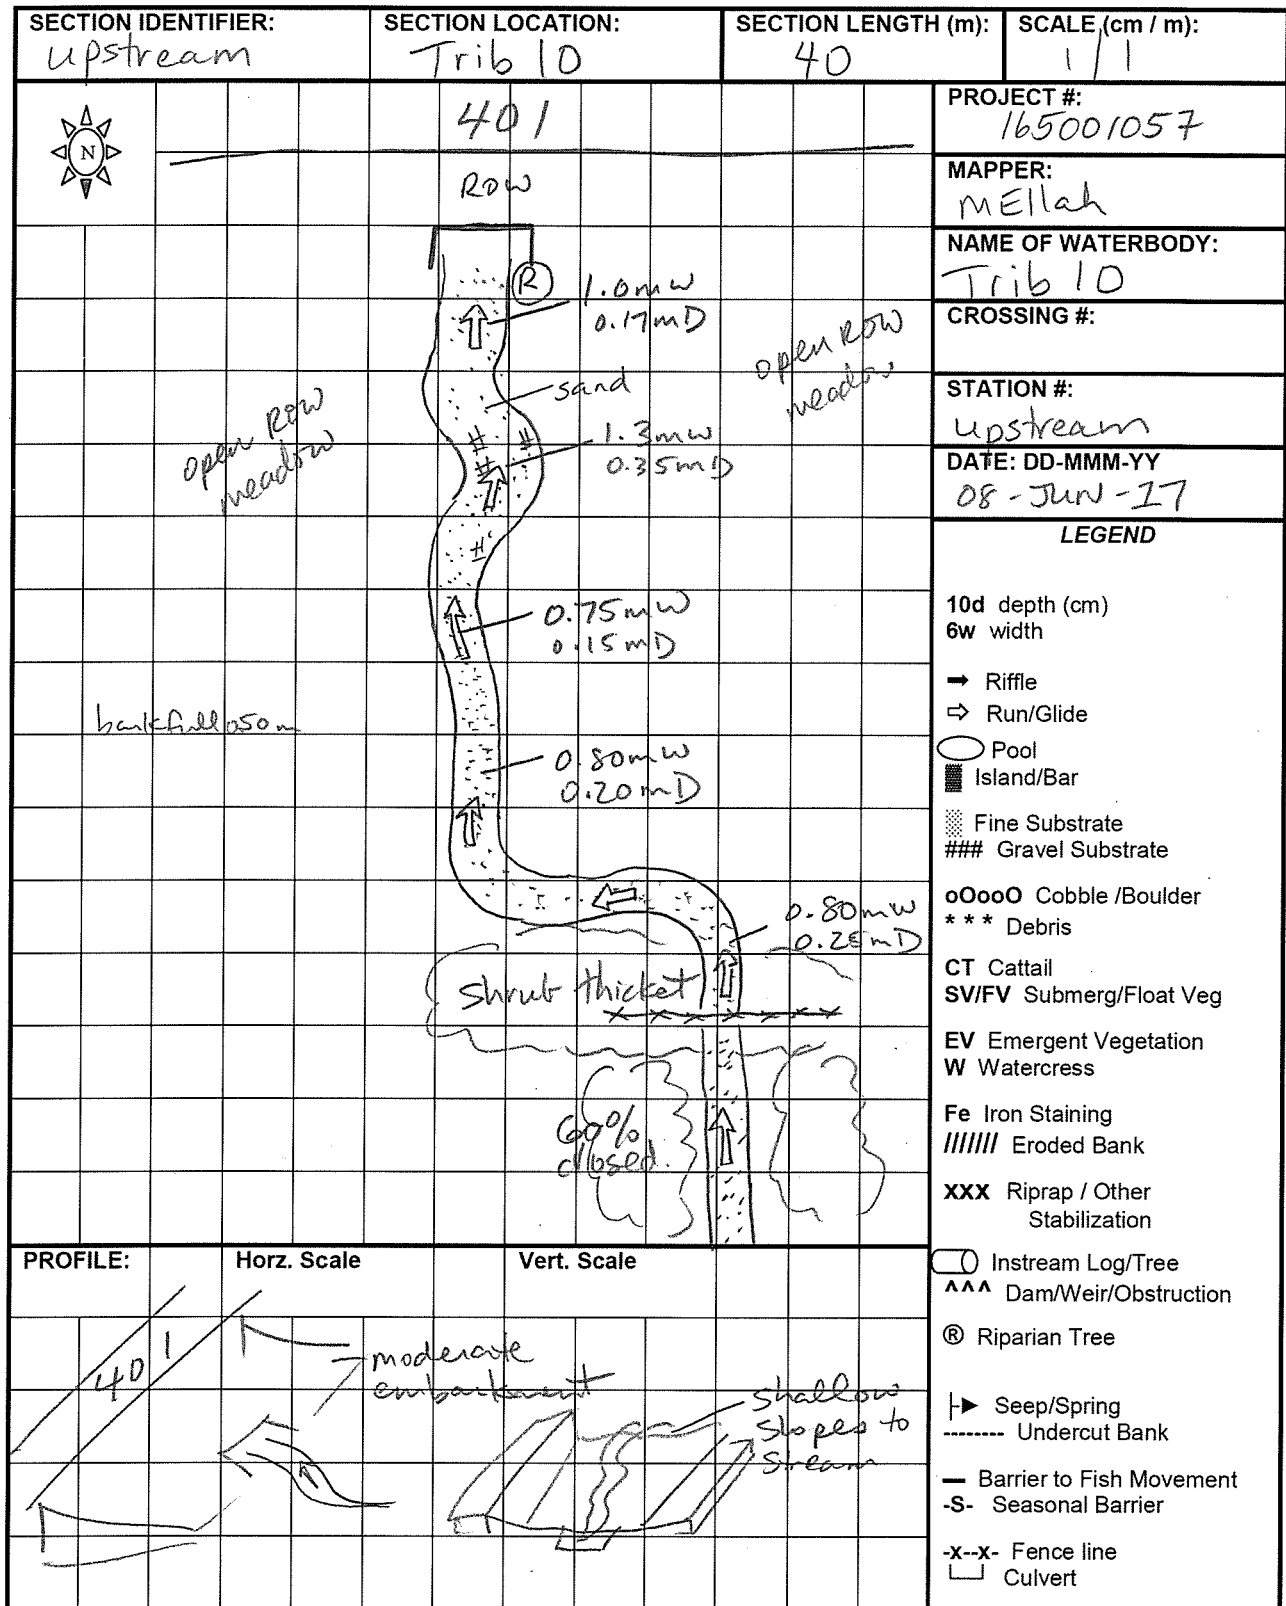 SECTION IDENTIFIER: SECTION LOCATION: SECTION LENGTH (m): SCALE (cm / m):
Upstream Trib 10 40 1/1
N
401
ROW
R
1.0mw
0.17mD
sand
open ROW
meadow
open ROW
meadow
1.3mw
0.35mD
0.75mW
0.15mD
bankfull 050m
0.80mW
0.20mD
0.80mw
0.25mD
shrub thicket
60%
closed.
PROJECT #:
165001057
MAPPER:
MEllah
NAME OF WATERBODY:
Trib 10
CROSSING #:
STATION #:
upstream
DATE: DD-MMM-YY
08-JUN-17
LEGEND
10d depth (cm)
6w width
Riffle
Run/Glide
Pool
Island/Bar
Fine Substrate
### Gravel Substrate
oOooO Cobble /Boulder
* * * Debris
CT Cattail
SV/FV Submerg/Float Veg
EV Emergent Vegetation
W Watercress
Fe Iron Staining
/////// Eroded Bank
XXX Riprap / Other
Stabilization
Instream Log/Tree
^^^ Dam/Weir/Obstruction
® Riparian Tree
Seep/Spring
-------- Undercut Bank
— Barrier to Fish Movement
-S- Seasonal Barrier
-x--x- Fence line
Culvert
PROFILE: Horz. Scale Vert. Scale
401
moderate
embankment
shallow
slopes to
stream